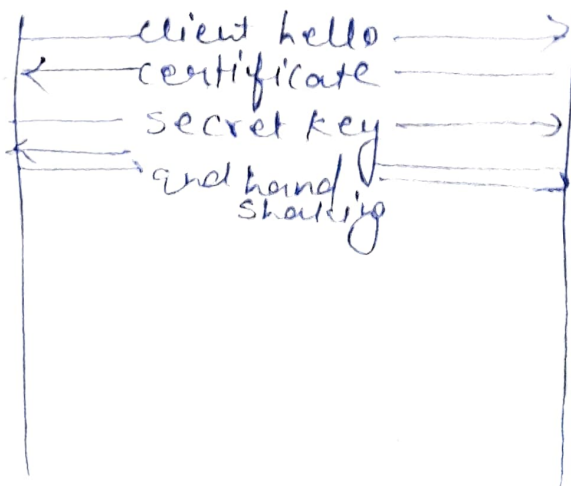 client hello
certificate
secret key
and hand
shaking